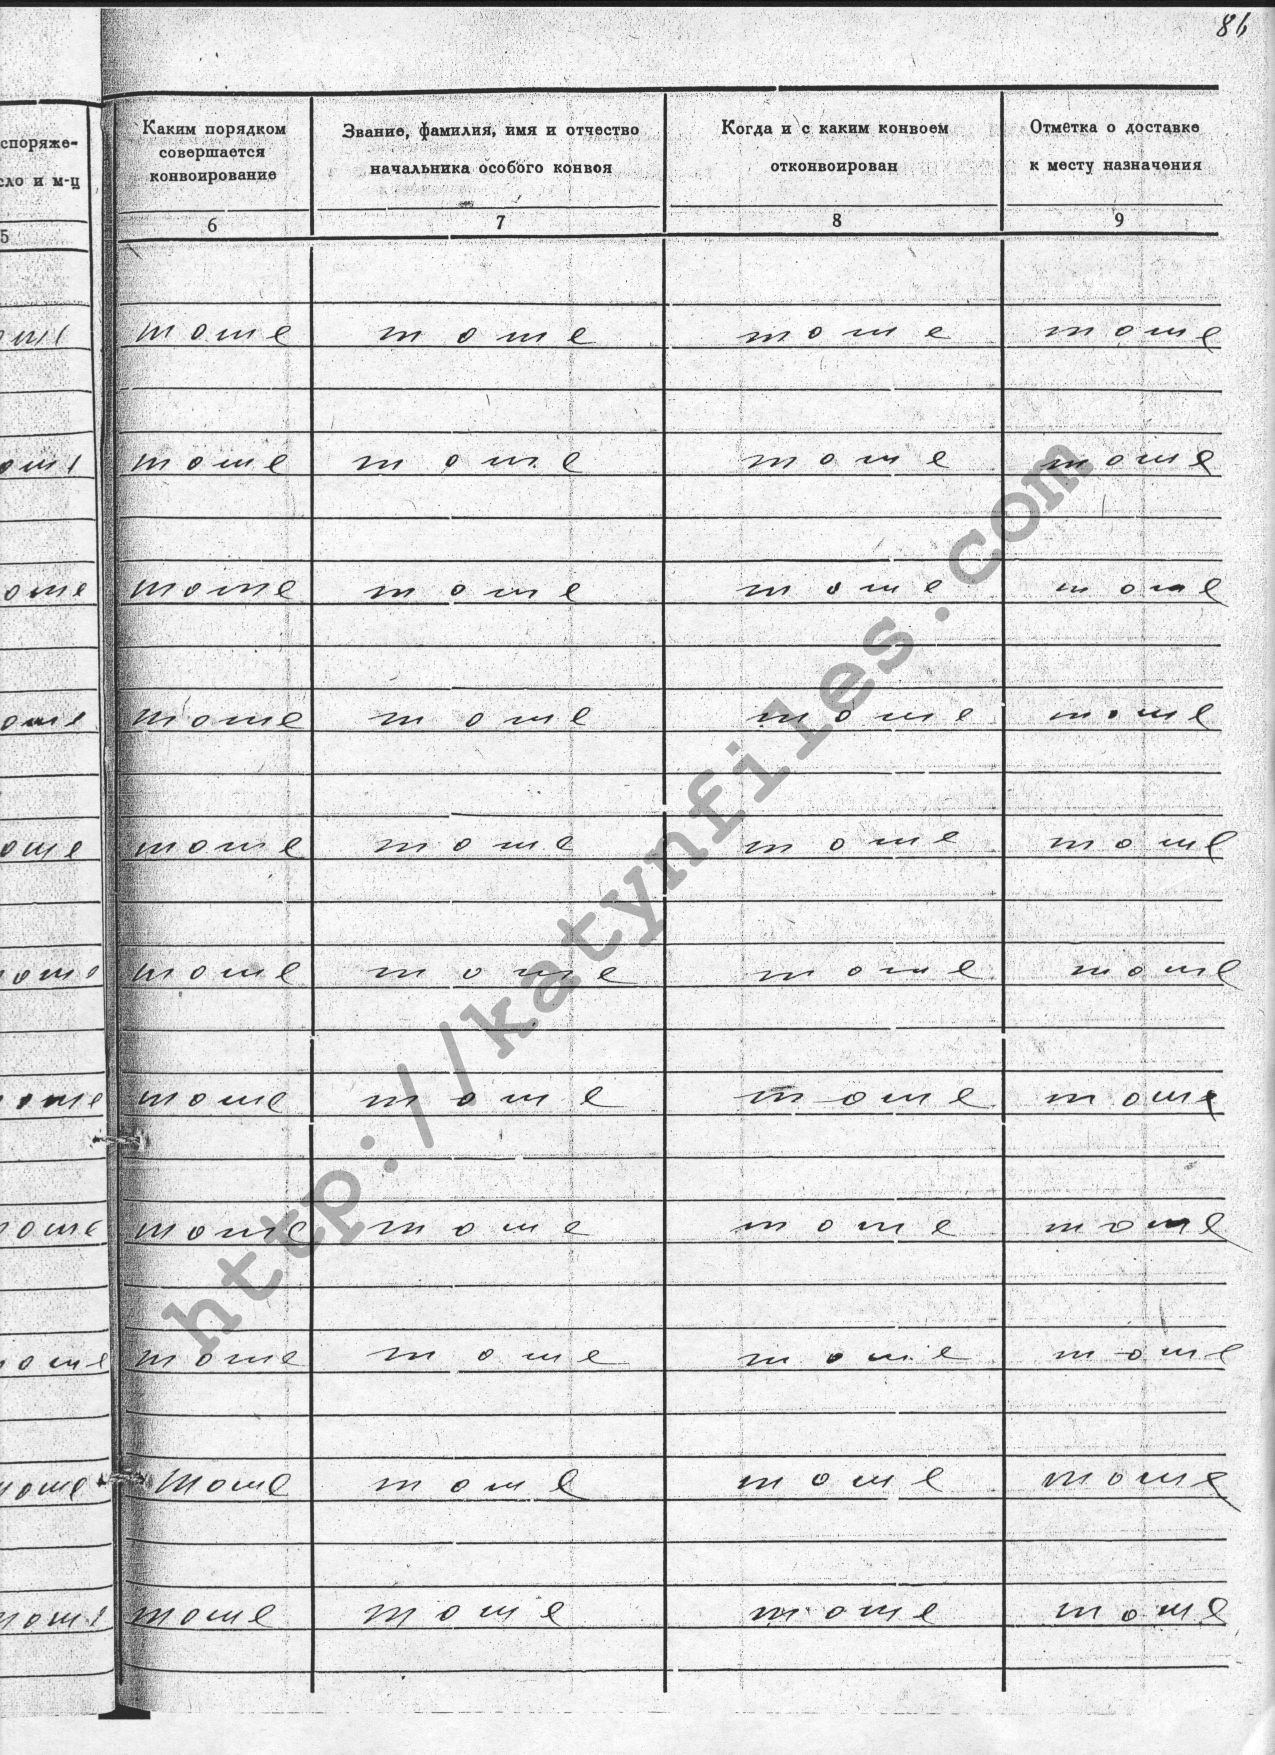 86
споряже-
сло и м-ц
5
Каким порядком
совершается
конвоирование
6
Звание, фамилия, имя и отчество
начальника особого конвоя
7
Когда и с каким конвоем
отконвоирован
8
Отметка о доставке
к месту назначения
9
тоже тоже тоже тоже
тоже тоже тоже тоже
тоже тоже тоже тоже
тоже тоже тоже тоже
тоже тоже тоже тоже
тоже тоже тоже тоже
тоже тоже тоже тоже
тоже тоже тоже тоже
тоже тоже тоже тоже
тоже тоже тоже тоже
тоже тоже тоже тоже
http://katynfiles.com